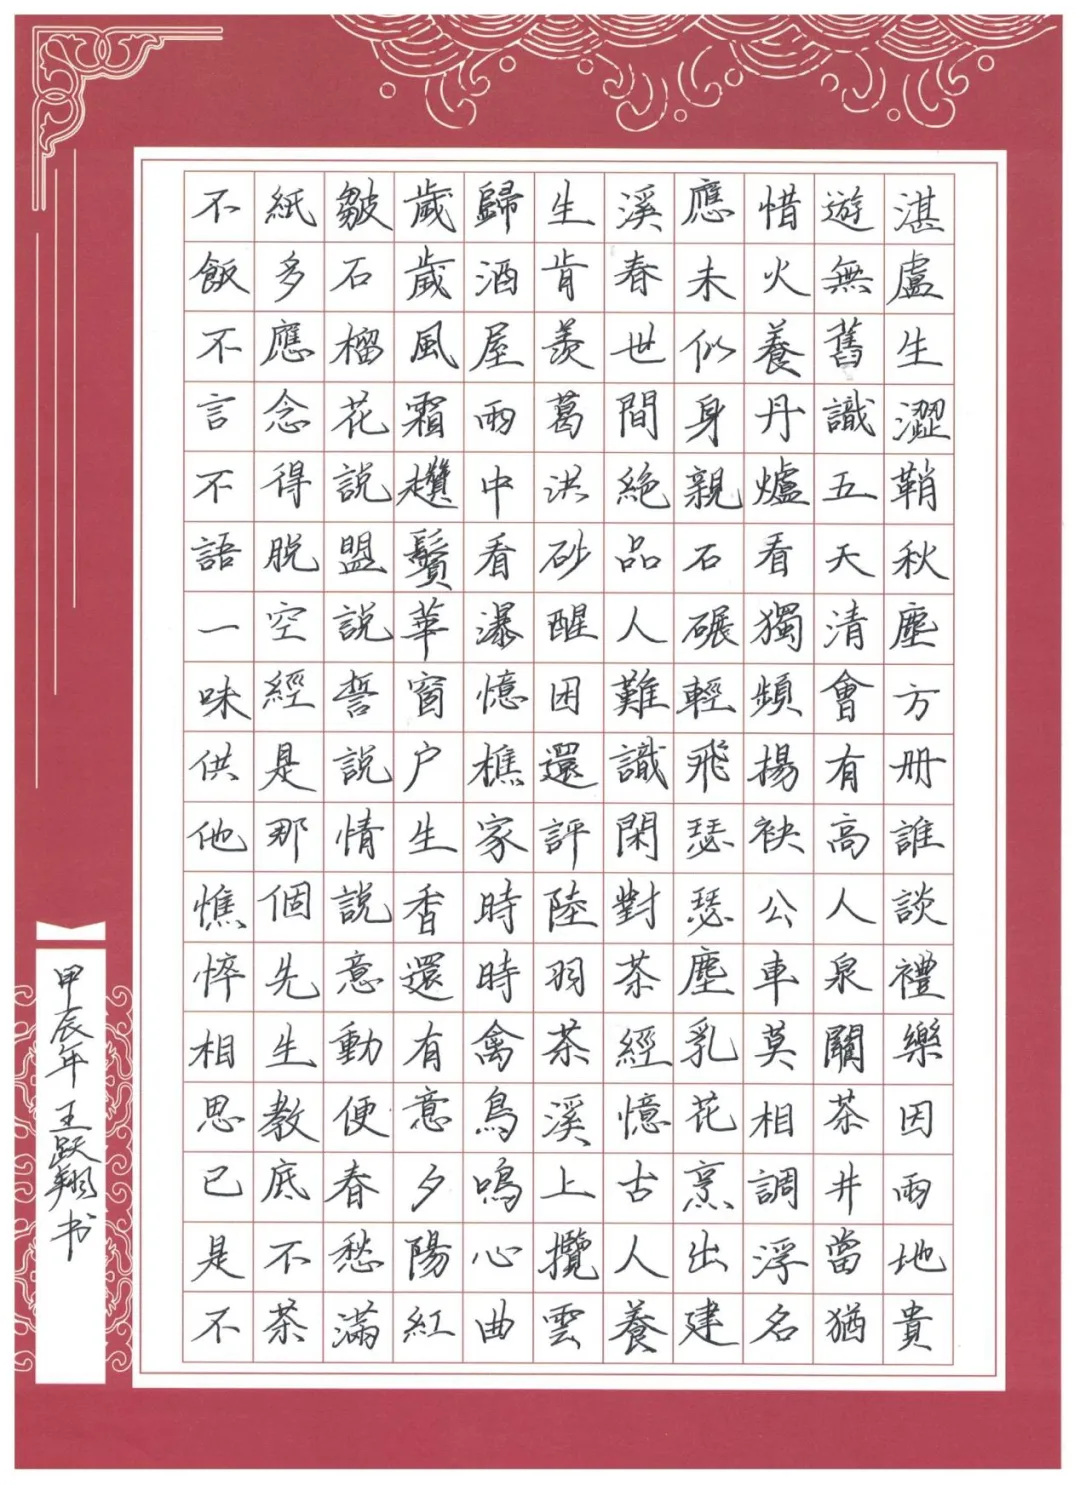 湛盧生澀鞘秋塵方册誰談禮樂因雨地貴
遊無舊識五天清會有高人泉關茶井當猶
惜火養丹爐看獨頻揚袂公車莫相調浮名
應未似身親石碾輕飛瑟瑟塵乳花烹出建
溪春世間絶品人難識閑對茶經憶古人養
生肯羨葛洪砂醒困還評陸羽茶溪上攬雲
歸酒屋雨中看瀑憶樵家時時禽鳥鳴心曲
歲歲風霜趲鬢華窗户生香還有意夕陽紅
皺石榴花説盟説誓説情説意動便春愁滿
紙多應念得脱空經是那個先生教底不茶
不飯不言不語一味供他憔悴相思已是不
甲辰年王跃翔书